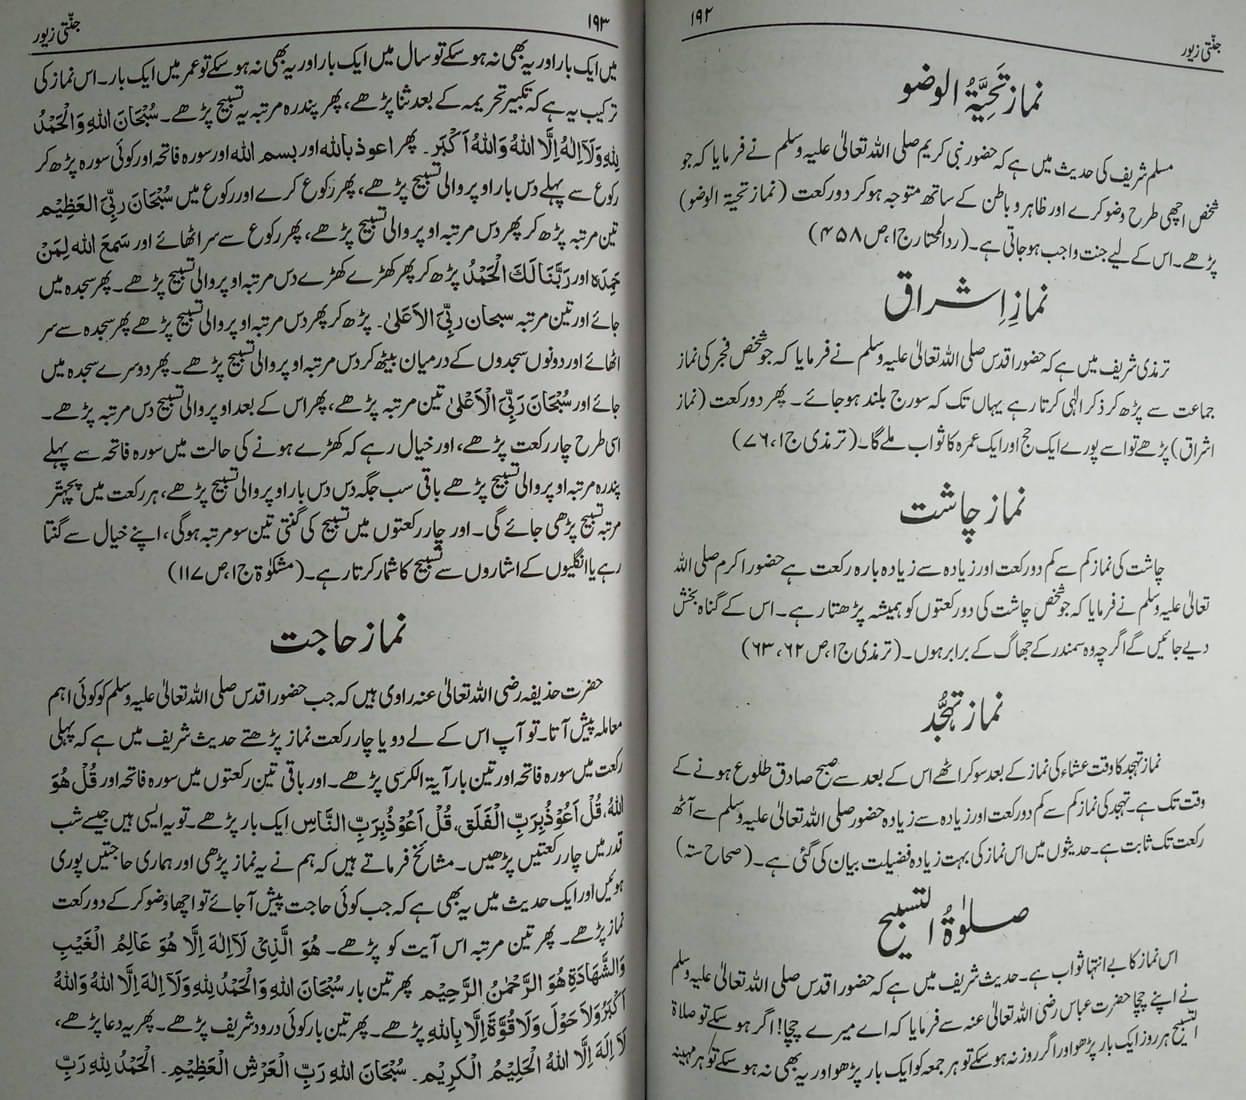 ۱۹۲
جنّتی زیور
نماز تَحِیَّۃُ الوضو
مسلم شریف کی حدیث میں ہے کہ حضور نبی کریم صلی اللہ تعالیٰ علیہ وسلم نے فرمایا کہ جو
شخص اچھی طرح وضو کرے اور ظاہر و باطن کے ساتھ متوجہ ہو کر دو رکعت (نماز تحیۃ الوضو)
پڑھے۔ اس کے لیے جنت واجب ہو جاتی ہے۔ (ردالمختار ج۱، ص ۴۵۸)
نمازِ اِشراق
ترمذی شریف میں ہے کہ حضور اقدس صلی اللہ تعالیٰ علیہ وسلم نے فرمایا کہ جو شخص فجر کی نماز
جماعت سے پڑھ کر ذکر الٰہی کرتا رہے یہاں تک کہ سورج بلند ہو جائے۔ پھر دو رکعت (نماز
اشراق) پڑھے تو اسے پورے ایک حج اور ایک عمرہ کا ثواب ملے گا۔ (ترمذی ج۱، ۷۶)
نماز چاشت
چاشت کی نماز کم سے کم دو رکعت اور زیادہ سے زیادہ بارہ رکعت ہے حضور اکرم صلی اللہ
تعالیٰ علیہ وسلم نے فرمایا کہ جو شخص چاشت کی دو رکعتوں کو ہمیشہ پڑھتا رہے۔ اس کے گناہ بخش
دیے جائیں گے اگرچہ وہ سمندر کے جھاگ کے برابر ہوں۔ (ترمذی ج۱، ص ۶۲، ۶۳)
نماز تہجُّد
نماز تہجد کا وقت عشاء کی نماز کے بعد سو کر اٹھے اس کے بعد سے صبح صادق طلوع ہونے کے
وقت تک ہے۔ تہجد کی نماز کم سے کم دو رکعت اور زیادہ سے زیادہ حضور صلی اللہ تعالیٰ علیہ وسلم سے آٹھ
رکعت تک ثابت ہے۔ حدیثوں میں اس نماز کی بہت زیادہ فضیلت بیان کی گئی ہے۔ (صحاح ستہ)
صلوٰۃُ التسبیح
اس نماز کا بے انتہا ثواب ہے۔ حدیث شریف میں ہے کہ حضور اقدس صلی اللہ تعالیٰ علیہ وسلم
نے اپنے چچا حضرت عباس رضی اللہ تعالیٰ عنہ سے فرمایا کہ اے میرے چچا! اگر ہو سکے تو صلاۃ
التسبیح ہر روز ایک بار پڑھو اور اگر روز نہ ہو سکے تو ہر جمعہ کو ایک بار پڑھو اور یہ بھی نہ ہو سکے تو ہر مہینہ
۱۹۳
جنّتی زیور
میں ایک بار اور یہ بھی نہ ہو سکے تو سال میں ایک بار اور یہ بھی نہ ہو سکے تو عمر میں ایک بار۔ اس نماز کی
ترکیب یہ ہے کہ تکبیر تحریمہ کے بعد ثنا پڑھے، پھر پندرہ مرتبہ یہ تسبیح پڑھے۔ سُبْحَانَ اللهِ وَالْحَمْدُ
لِلهِ وَلَآ اِلٰهَ اِلَّا اللهُ وَاللهُ اَکْبَر۔ پھر اعوذ باللہ اور بسم اللہ اور سورہ فاتحہ اور کوئی سورہ پڑھ کر
رکوع سے پہلے دس بار اوپر والی تسبیح پڑھے، پھر رکوع کرے اور رکوع میں سُبْحَانَ رَبِّیَ الْعَظِیْم
تین مرتبہ پڑھ کر پھر دس مرتبہ اوپر والی تسبیح پڑھے، پھر رکوع سے سر اٹھائے اور سَمِعَ اللهُ لِمَنْ
حَمِدَهٗ اور رَبَّنَا لَکَ الْحَمْدُ پڑھ کر پھر کھڑے کھڑے دس مرتبہ اوپر والی تسبیح پڑھے۔ پھر سجدہ میں
جائے اور تین مرتبہ سبحان ربّی الاَعلٰی۔ پڑھ کر پھر دس مرتبہ اوپر والی تسبیح پڑھے پھر سجدہ سے سر
اٹھائے اور دونوں سجدوں کے درمیان بیٹھ کر دس مرتبہ اوپر والی تسبیح پڑھے۔ پھر دوسرے سجدہ میں
جائے اور سُبْحَانَ رَبِّیَ الْاَعْلٰی تین مرتبہ پڑھے، پھر اس کے بعد اوپر والی تسبیح دس مرتبہ پڑھے۔
اسی طرح چار رکعت پڑھے، اور خیال رہے کہ کھڑے ہونے کی حالت میں سورہ فاتحہ سے پہلے
پندرہ مرتبہ اوپر والی تسبیح پڑھے باقی سب جگہ دس دس بار اوپر والی تسبیح پڑھے، ہر رکعت میں پچھتر
مرتبہ تسبیح پڑھی جائے گی۔ اور چار رکعتوں میں تسبیح کی گنتی تین سو مرتبہ ہوگی، اپنے خیال سے گنتا
رہے یا انگلیوں کے اشاروں سے تسبیح کا شمار کرتا رہے۔ (مشکوٰۃ ج۱، ص ۱۱۷)
نماز حاجت
حضرت حذیفہ رضی اللہ تعالیٰ عنہ راوی ہیں کہ جب حضور اقدس صلی اللہ تعالیٰ علیہ وسلم کو کوئی اہم
معاملہ پیش آتا۔ تو آپ اس کے لے دو یا چار رکعت نماز پڑھتے حدیث شریف میں ہے کہ پہلی
رکعت میں سورہ فاتحہ اور تین بار آیۃ الکرسی پڑھے۔ اور باقی تین رکعتوں میں سورہ فاتحہ اور قُلْ هُوَ
اللهُ، قُلْ اَعُوْذُ بِرَبِّ الْفَلَقِ، قُلْ اَعُوْذُ بِرَبِّ النَّاسِ ایک بار پڑھے۔ تو یہ ایسی ہیں جیسے شب
قدر میں چار رکعتیں پڑھیں۔ مشائخ فرماتے ہیں کہ ہم نے یہ نماز پڑھی اور ہماری حاجتیں پوری
ہوئیں اور ایک حدیث میں یہ بھی ہے کہ جب کوئی حاجت پیش آ جائے تو اچھا وضو کر کے دو رکعت
نماز پڑھے۔ پھر تین مرتبہ اس آیت کو پڑھے۔ هُوَ الَّذِیْ لَآ اِلٰهَ اِلَّا هُوَ عَالِمُ الْغَیْبِ
وَالشَّهَادَةِ هُوَ الرَّحْمٰنُ الرَّحِیْم پھر تین بار سُبْحَانَ اللهِ وَالْحَمْدُ لِلهِ وَلَآ اِلٰهَ اِلَّا اللهُ وَاللهُ
اَکْبَرُ وَلَا حَوْلَ وَلَا قُوَّةَ اِلَّا بِاللهِ پڑھے۔ پھر تین بار کوئی درود شریف پڑھے۔ پھر یہ دعا پڑھے،
لَآ اِلٰهَ اِلَّا اللهُ الْحَلِیْمُ الْکَرِیْم۔ سُبْحَانَ اللهِ رَبِّ الْعَرْشِ الْعَظِیْمِ۔ اَلْحَمْدُ لِلهِ رَبِّ